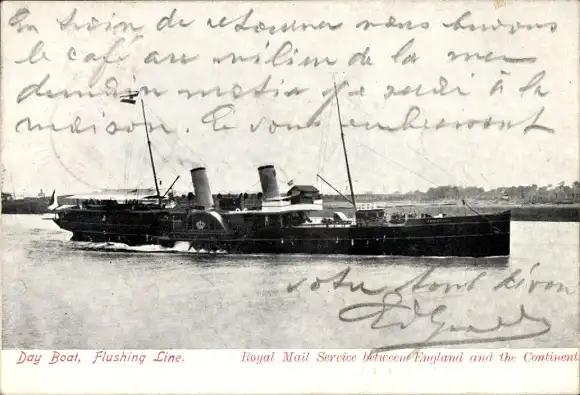 En train de retourner nous buvons
le café au milieu de la mer
demain matin je serai à la
maison. Je vous embrassant
votre tout dévoué
Day Boat, Flushing Line.
Royal Mail Service between England and the Continent.